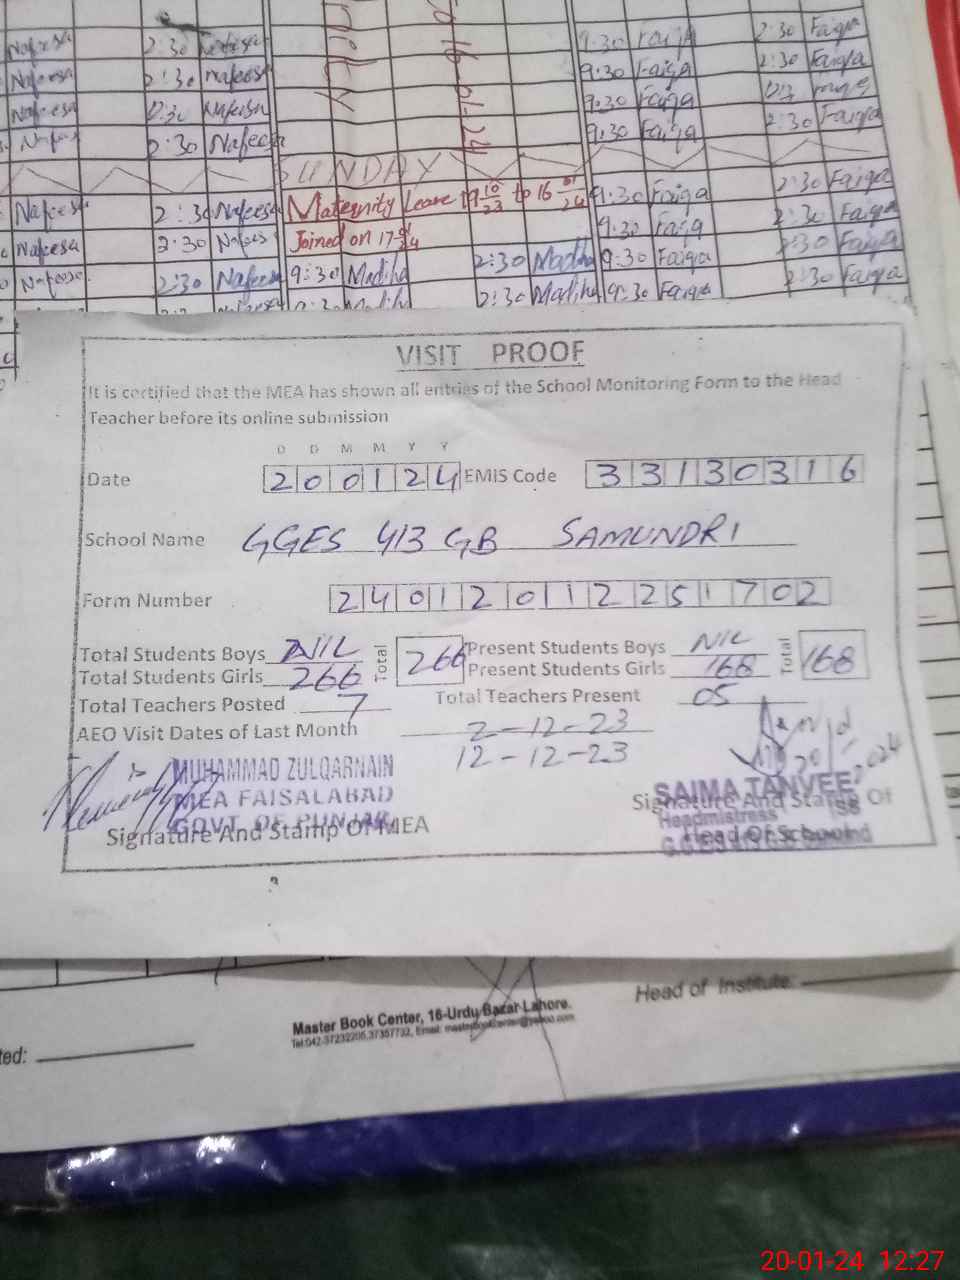 Nafeesa 2:30 Nafeesa 9:30 Faiqa 2:30 Faiqa
Nafeesa 2:30 Nafeesa 9:30 Faiqa 2:30 Faiqa
Nafeesa Nafeesa 9:30 Faiqa
Nafeesa 2:30 Nafeesa 9:30 Faiqa 2:30 Faiqa
SUNDAY
Nafeesa 2:30 Nafeesa Maternity Leave 19 10/23 to 16 01/24 9:30 Faiqa 2:30 Faiqa
Nafeesa 2:30 Nafees Joined on 17 9:30 Faiqa 2:30 Faiqa
Nafeesa 2:30 Nafeesa 9:30 Madiha 2:30 Madiha 9:30 Faiqa 2:30 Faiqa
Madiha 2:30 Madiha 9:30 Faiqa 2:30 Faiqa
VISIT PROOF
It is certified that the MEA has shown all entries of the School Monitoring Form to the Head
Teacher before its online submission
D D M M Y Y
Date 200124 EMIS Code 33130316
School Name GGES 413 GB SAMUNDRI
Form Number 240120112251702
Total Students Boys NIL Total 266 Present Students Boys NIL Total 168
Total Students Girls 266 Present Students Girls 168
Total Teachers Posted 7 Total Teachers Present 05
AEO Visit Dates of Last Month 2-12-23
12-12-23
MUHAMMAD ZULQARNAIN
MEA FAISALABAD
GOVT. OF PUNJAB
Signature And Stamp Of MEA
SAIMA TANVEE
Signature And Stamp Of
Headmistress
Head Of School
Head of Institute:
Master Book Center, 16-Urdu Bazar Lahore.
Tel:042-37232205,37357732, Email:
ted:
20-01-24 12:27